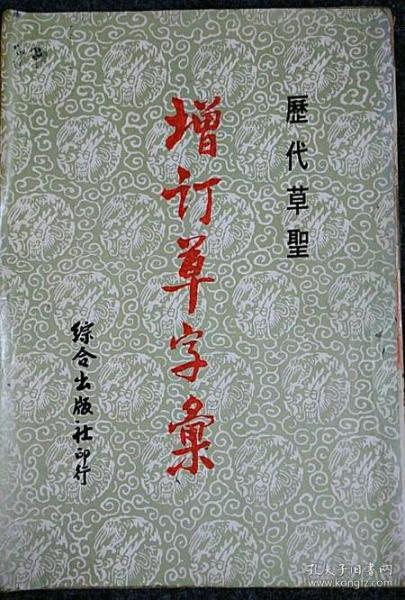 歷代草聖
增訂草字彙
綜合出版社印行
孔夫子旧书网